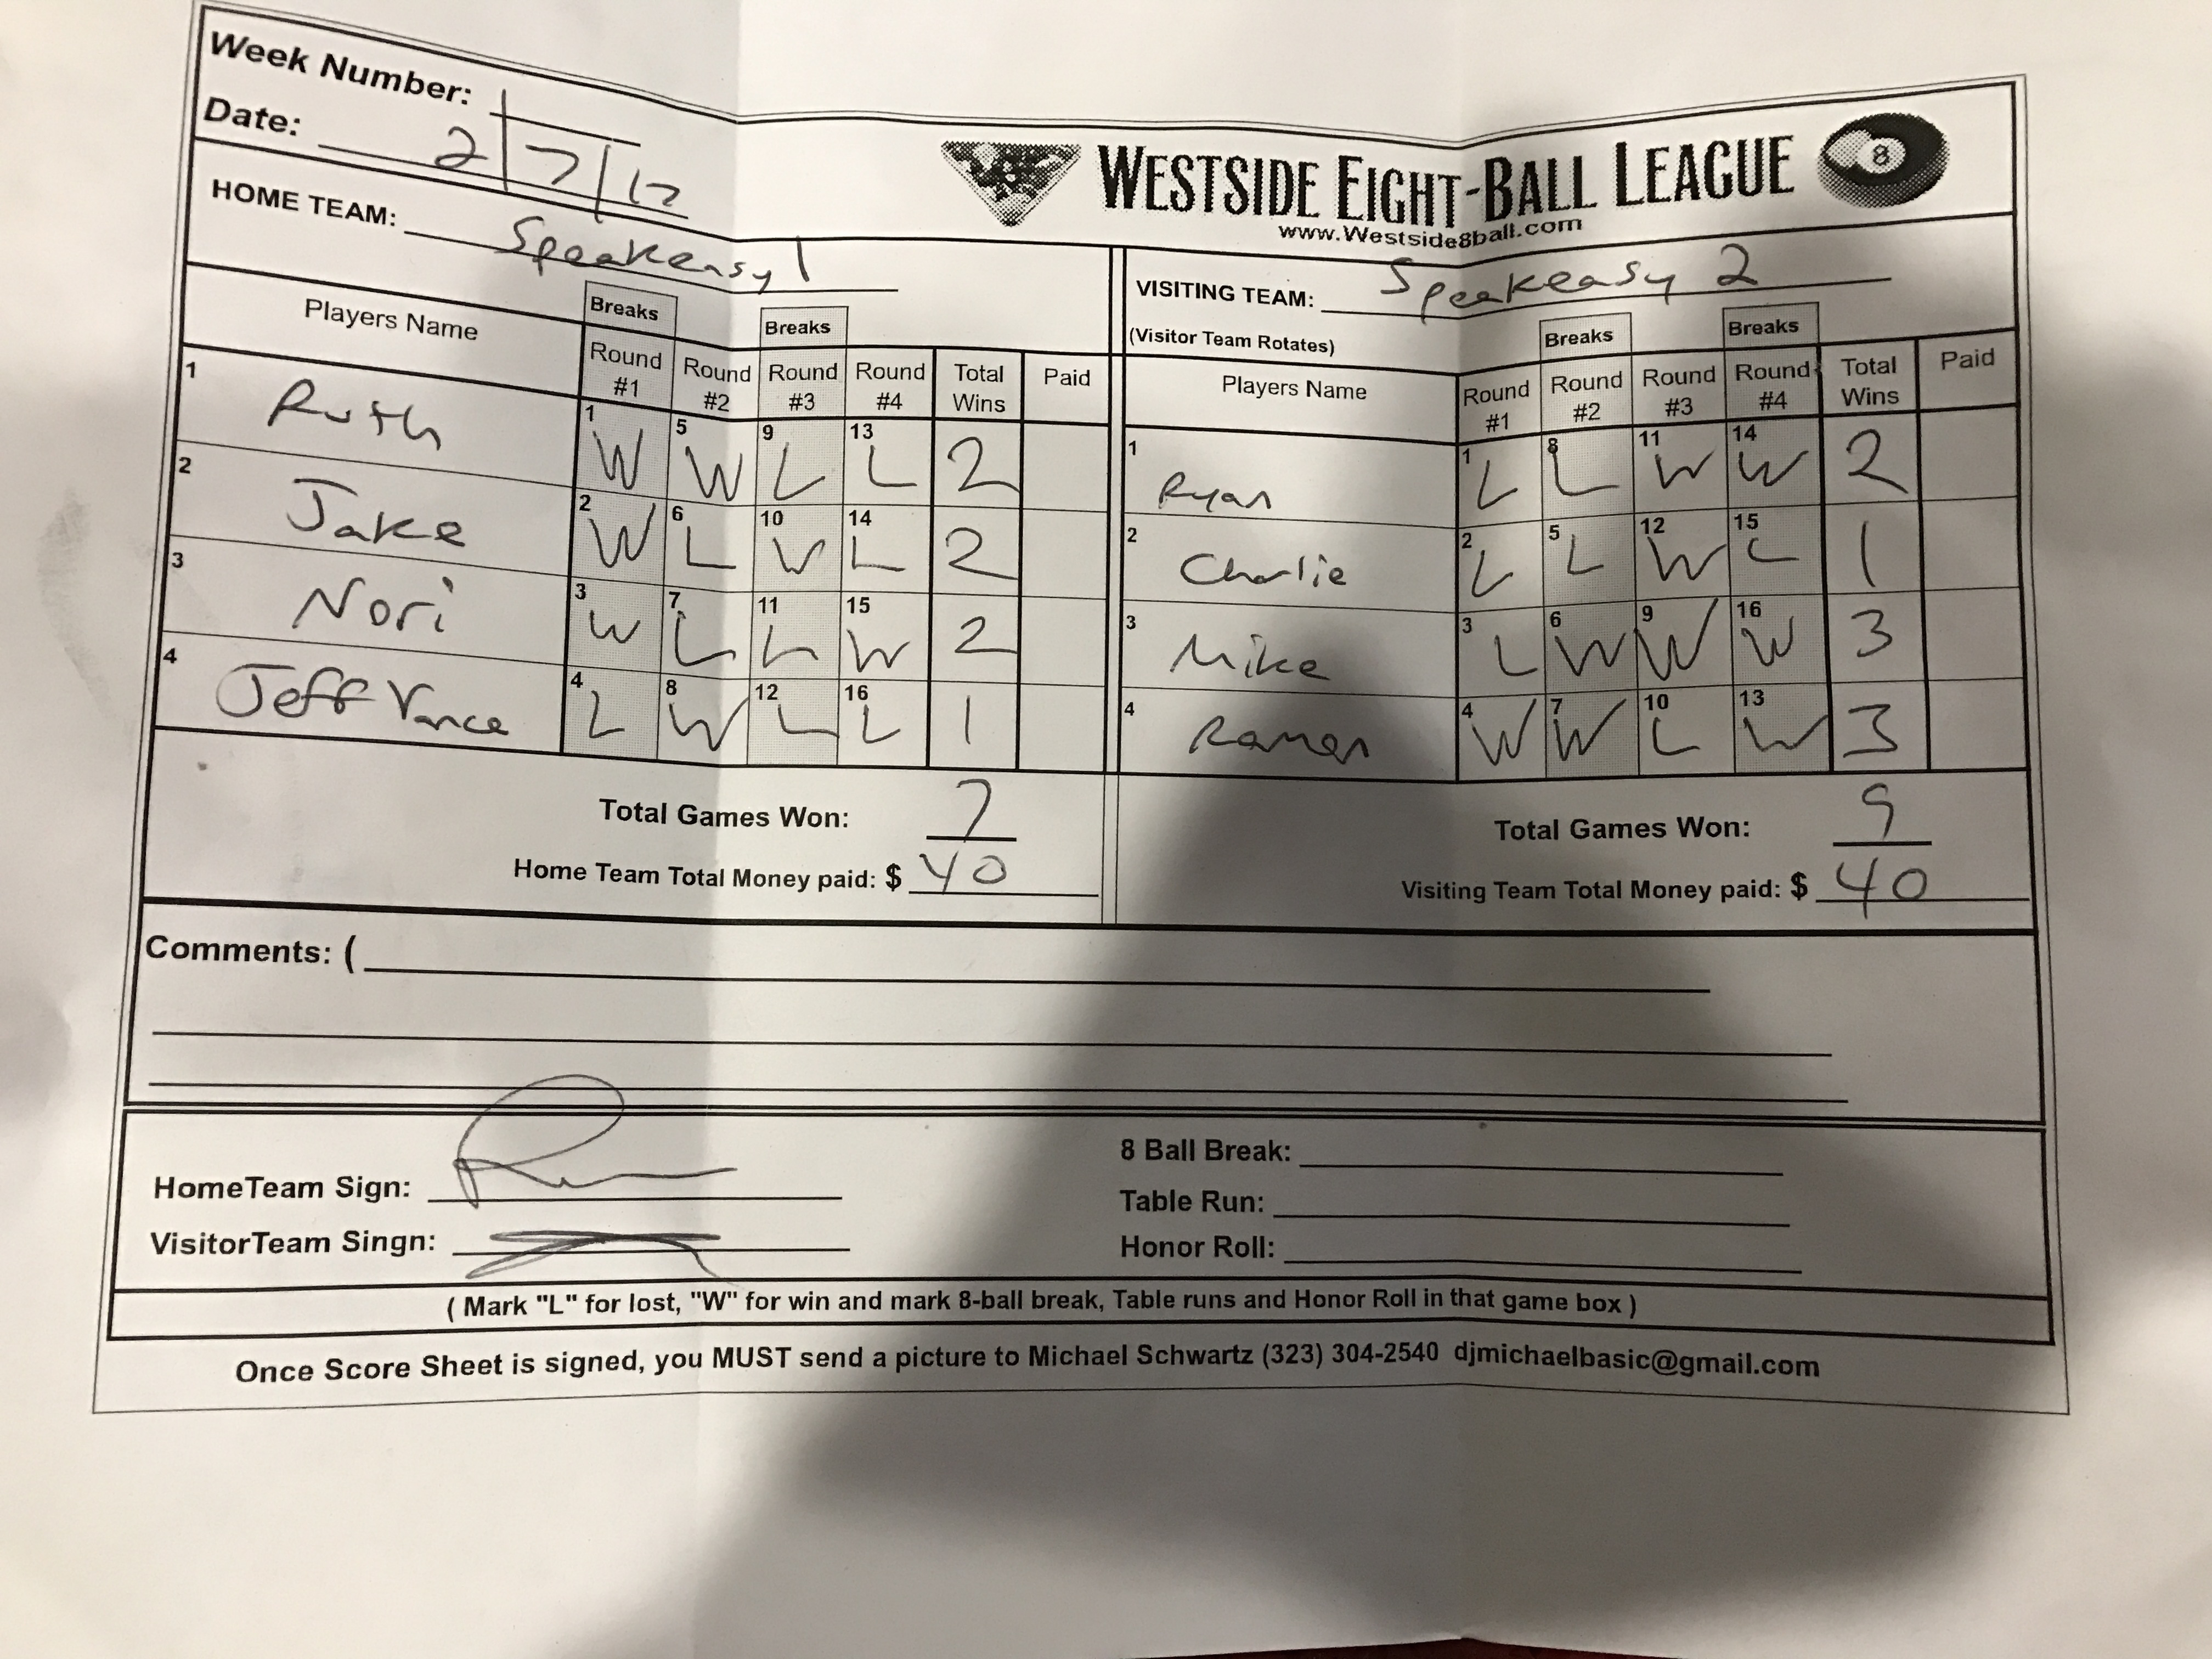 Week Number:
Date: 2/7/17
WESTSIDE EIGHT-BALL LEAGUE 8
www.Westside8ball.com
HOME TEAM: Speakeasy 1
VISITING TEAM: Speakeasy 2
(Visitor Team Rotates)
Breaks Breaks
Players Name Round #1 Round #2 Round #3 Round #4 Total Wins Paid
1 Ruth 1 W 5 W 9 L 13 L 2
2 Jake 2 W 6 L 10 W 14 L 2
3 Nori 3 W 7 L 11 L 15 W 2
4 Jeff Vance 4 L 8 W 12 L 16 L 1
Total Games Won: 7
Home Team Total Money paid: $ 40
Breaks Breaks
Players Name Round #1 Round #2 Round #3 Round #4 Total Wins Paid
1 Ryan 1 L 8 L 11 W 14 W 2
2 Charlie 2 L 5 L 12 W 15 L 1
3 Mike 3 L 6 W 9 W 16 W 3
4 Ramen 4 W 7 W 10 L 13 W 3
Total Games Won: 9
Visiting Team Total Money paid: $ 40
Comments: (
HomeTeam Sign:
VisitorTeam Singn:
8 Ball Break:
Table Run:
Honor Roll:
( Mark "L" for lost, "W" for win and mark 8-ball break, Table runs and Honor Roll in that game box )
Once Score Sheet is signed, you MUST send a picture to Michael Schwartz (323) 304-2540 djmichaelbasic@gmail.com